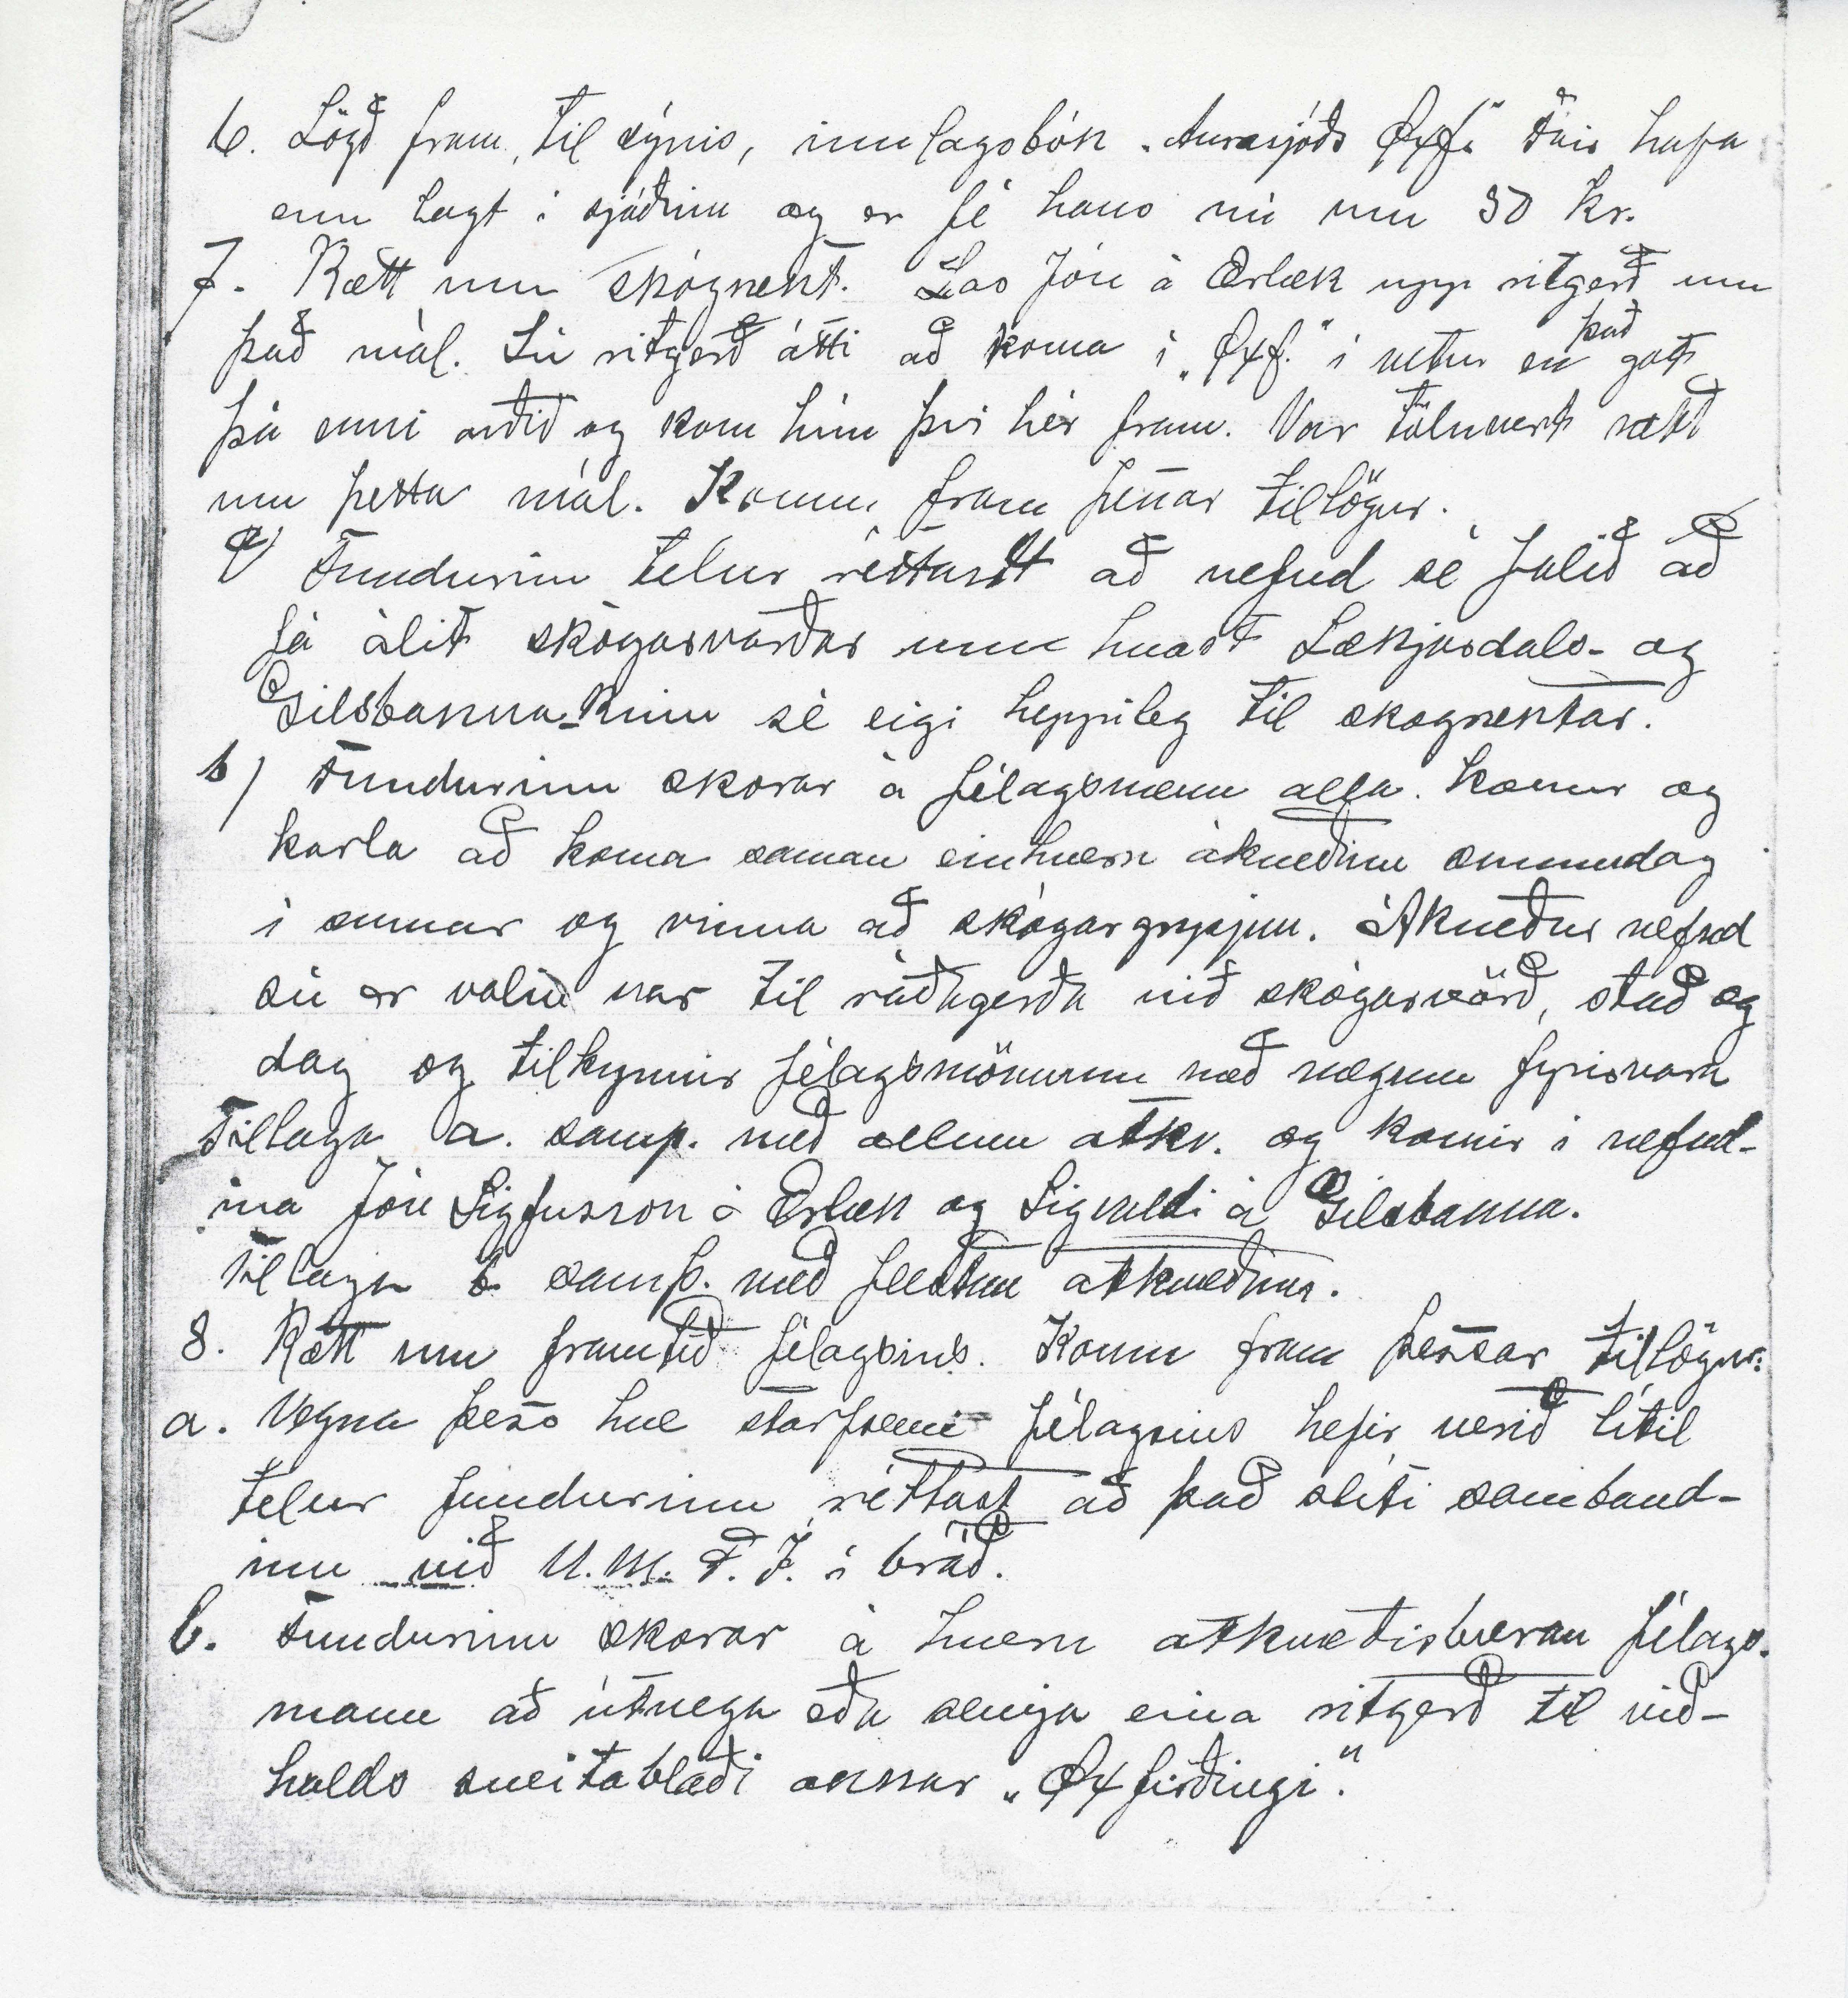 6. Lögð fram, til sýnis, innlagsbók „Aurasjóðs Öxf." Fáir hafa
enn lagt í sjóðinn og er fé hans nú um 30 kr.
7. Rætt um skógrækt. Las Jón á Ærlæk upp ritgerð um
það mál. Sú ritgerð átti að koma í „Öxf." í vetur en það gat
þá enni orðið og kom hún því hér fram. Var töluvert rætt
um þetta mál. Komu fram þessar tillögur.
a) Fundurinn telur réttast að nefnd sé falið að
fá álit skógarvarðar um hvort Lækjardals- og
Gilsbakka-kinn sé eigi heppileg til skógræktar.
b) Fundurinn skorar á félagsmenn alla. konur og
karla að koma saman einhvern ákveðinn sunnudag
í sumar og vinna að skógargrysjun. Ákveður nefnd
sú er valin var til ráðagerða við skógarvörð, stað og
dag og tilkynnir félagsmönnum með nægum fyrirvara
Tillaga a. samþ. með öllum atkv. og kosnir í nefnd-
ina Jón Sigfússon á Ærlæk og Sigvaldi á Gilsbakka.
Tillaga b samþ. með flestum atkvæðum.
8. Rætt um framtíð félagsins. Komu fram þessar tillögur:
a. Vegna þess hve starfsemi félagsins hefir verið lítil
telur fundurinn réttast að það slíti samband-
inu við U.M.F.Í. í bráð.
b. Fundurinn skorar á hvern atkvætisbæran félags-
mann að útvega eða semja eina ritgerð til við-
halds sveitablaði okkar „Öxfirðingi".